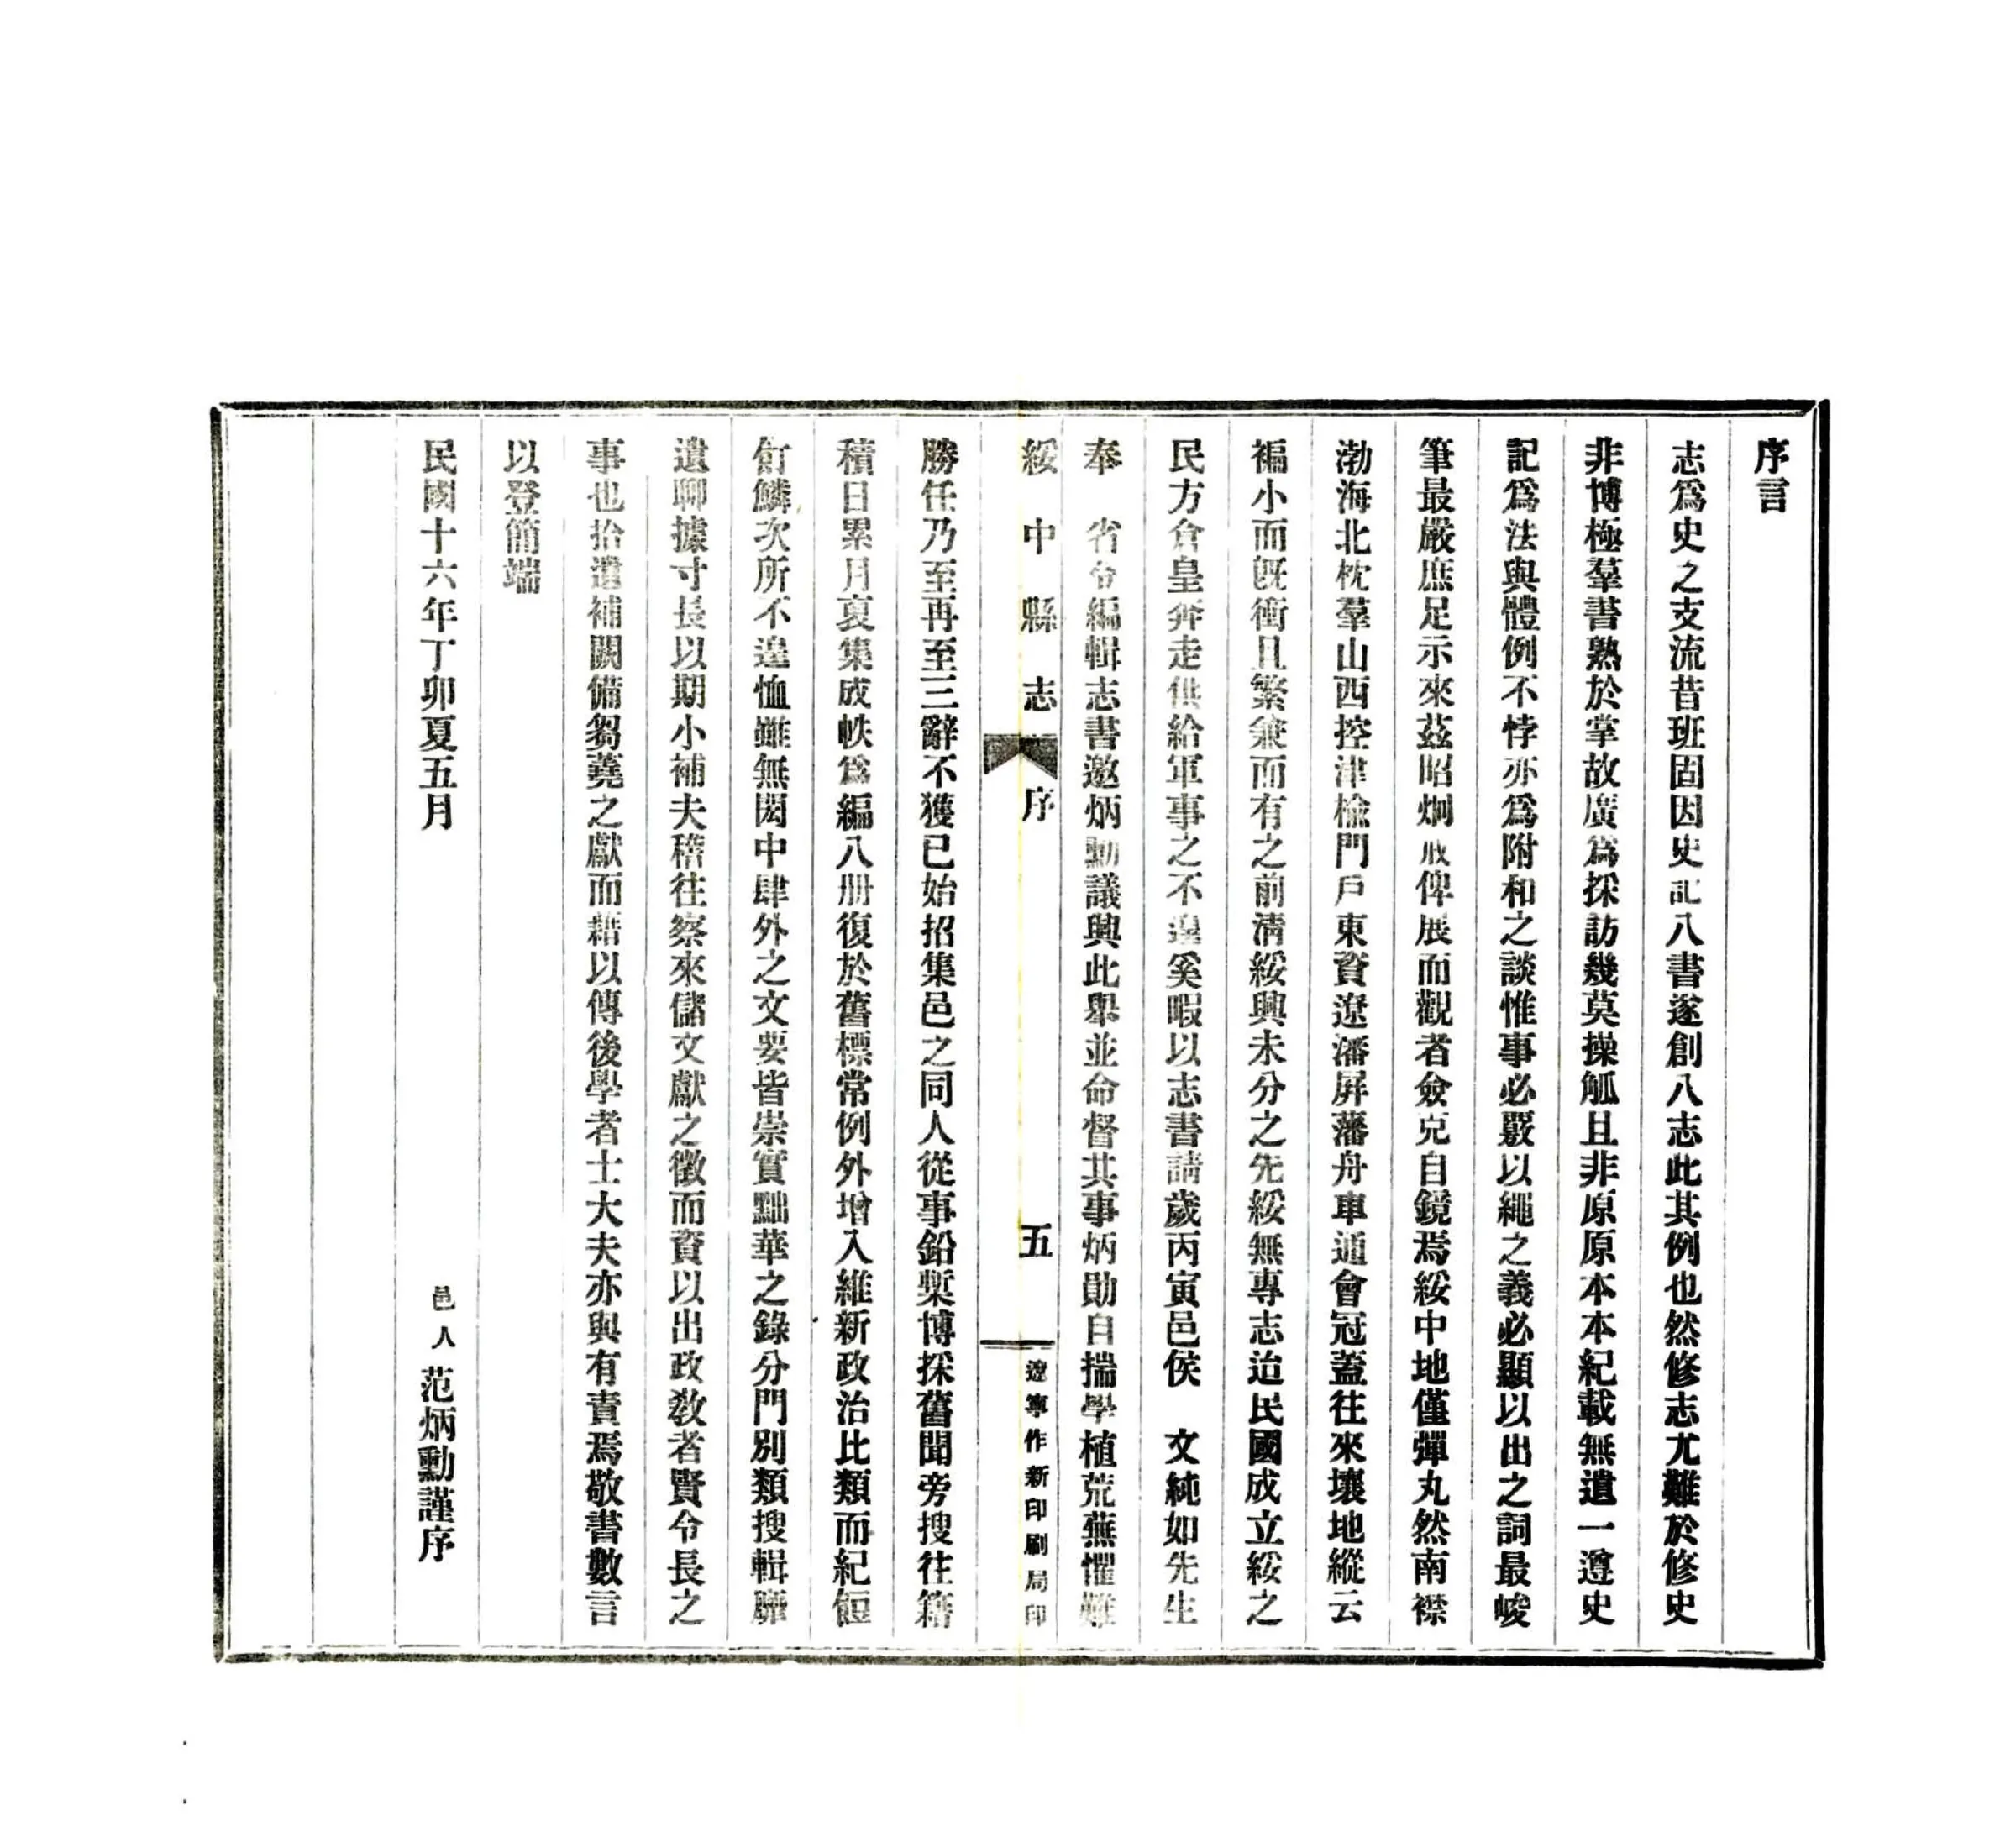 序言
志爲史之支流昔班固因史記八書遂創八志此其例也然修志尤難於修史
非博極羣書熟於掌故廣爲採訪幾莫操觚且非原原本本紀載無遺一遵史
記爲法與體例不悖亦爲附和之談惟事必覈以繩之義必顯以出之詞最峻
筆最嚴庶足示來茲昭炯戒俾展而觀者僉克自鏡焉綏中地僅彈丸然南襟
渤海北枕羣山西控津榆門戶東資遼瀋屏藩舟車通會冠蓋往來壤地縱云
褊小而旣衝且繁兼而有之前淸綏興未分之先綏無專志迨民國成立綏之
民方倉皇奔走供給軍事之不遑奚暇以志書請歲丙寅邑侯　文純如先生
奉　省令編輯志書邀炳勳議興此舉並命督其事炳勛自揣學植荒蕪懼難
綏中縣志　序　五　遼寧作新印刷局印
勝任乃至再至三辭不獲已始招集邑之同人從事鉛槧博採舊聞旁搜往籍
積日累月裒集成帙爲編八册復於舊標常例外增入維新政治比類而紀餖
飣鱗次所不遑恤雖無閎中肆外之文要皆崇實黜華之錄分門別類搜輯靡
遺聊據寸長以期小補夫稽往察來儲文獻之徵而資以出政敎者賢令長之
事也拾遺補闕備芻蕘之獻而藉以傳後學者士大夫亦與有責焉敬書數言
以登簡端
民國十六年丁卯夏五月　邑人　范炳勳謹序